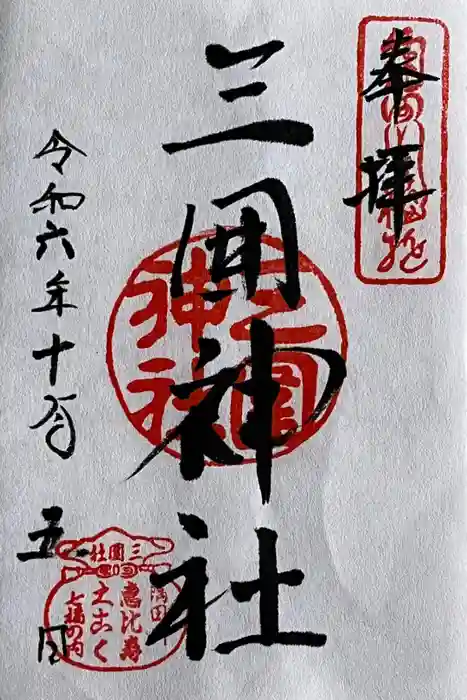 奉拝
三囲神社
令和六年十月
五日
三囲神社
三囲社
隅田
恵比寿
大こく
七福の内